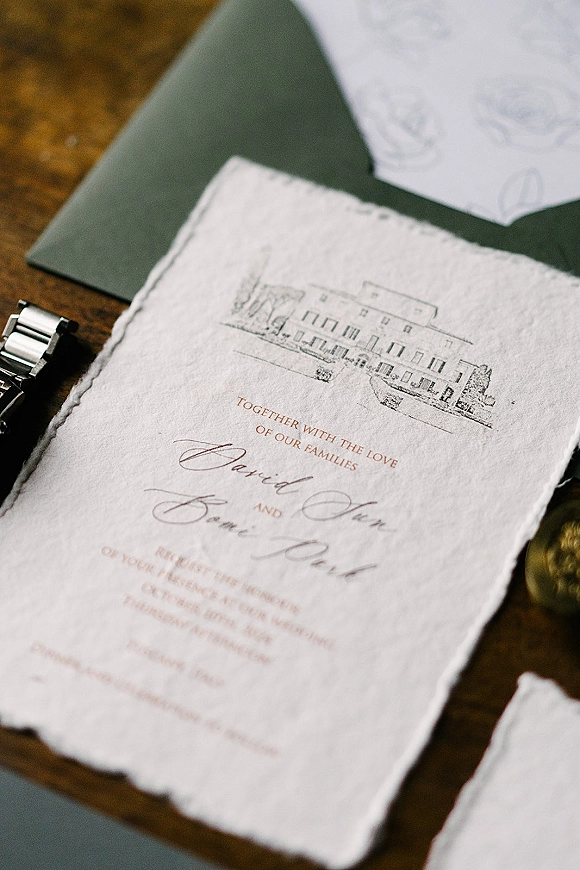 TOGETHER WITH THE LOVE
OF OUR FAMILIES
David Sun
AND
Bomi Park
REQUEST THE HONOUR
OF YOUR PRESENCE AT OUR WEDDING
OCTOBER
THURSDAY AFTERNOON
TUSCANY, ITALY
DINNER AND CELEBRATION TO FOLLOW